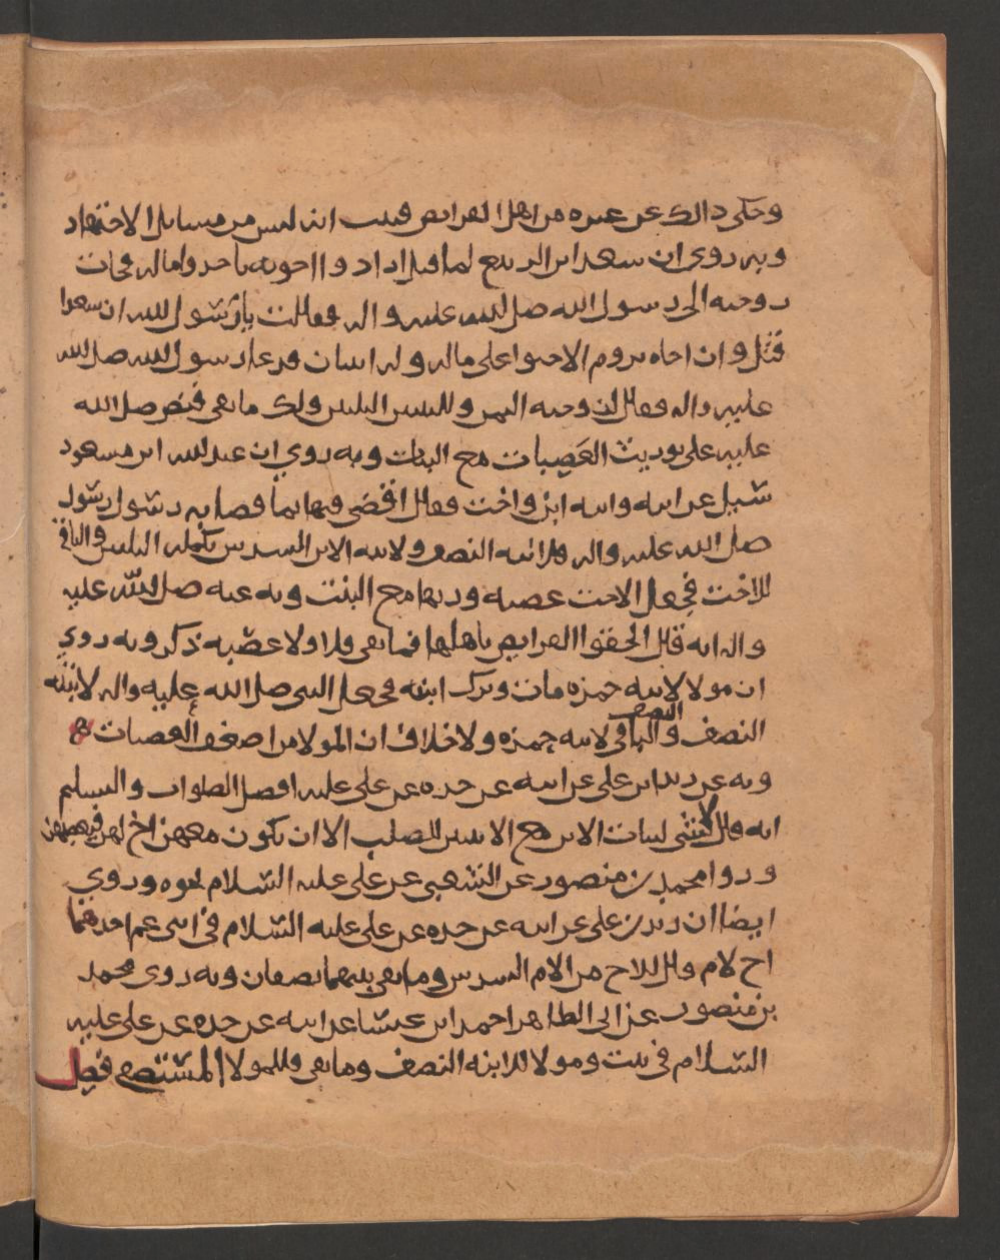 وحكى ذالك عن غيره من اهل الفرايض فثبت انه ليس من مسايل الاجتهاد
وبه روي ان سعد ابن الربيع لما قتل اراد وا اخوته ياخذوا ماله فجات
زوجته الى رسول الله صلى الله عليه واله فقالت يا رسول الله ان سعدا
قتل وان اخاه يروم الاحتوا على ماله وله ابنتان فدعا رسول الله صلى الله
عليه واله فقال لزوجته الثمن وللبنتين الثلثين ولك ما بقي فنص صلى الله
عليه على توريث العَصِبات مع البنات وبه روي ان عبدالله ابن مسعود
سُيل عن ابنه وابنه ابن واخت فقال اقضي فيها بما قضا به رسول رسول
صلى الله عليه واله فلابنته النصف ولابنه الابن السدس تكمله الثلثين والباقي
للاخت فجعل الاخت عصبه وورثها مع البنت وبه عنه صلى الله عليه
واله انه قال الحقوا الفرايض باهلها فما بقي فلاولا عصبه ذكر وبه روي
ان مولا لابنه حمزه مات وترك ابنته فجعل النبي صلى الله عليه واله لابنته
النصف والباقي النصف لابنه حمزه ولا خلاف ان المولا من اضعف العصبات
وبه عن زيد ابن علي عن ابيه عن جده عن علي عليه افضل الصلوات والتسليم
انه قال لا شي لبنات الابن مع الابنتين للصلب الا ان يكون معهن اخ لهن فيعصبهن
وروا محمد بن منصور عن الشعبي عن علي عليه السلام نحوه وروي
ايضا ان زيد بن علي عن ابيه عن جده عن علي عليه السلام في ابني عم احدهما
اخ لام قال للاخ من الام السدس وما بقي بينهما نصفان وبه روى محمد
بن منصور عن ابي الطاهر احمد ابن عيسا عن ابيه عن جده عن علي عليه
السلام في بنت ومولا للابنه النصف وما بقي فللمولا المستصفي فصل